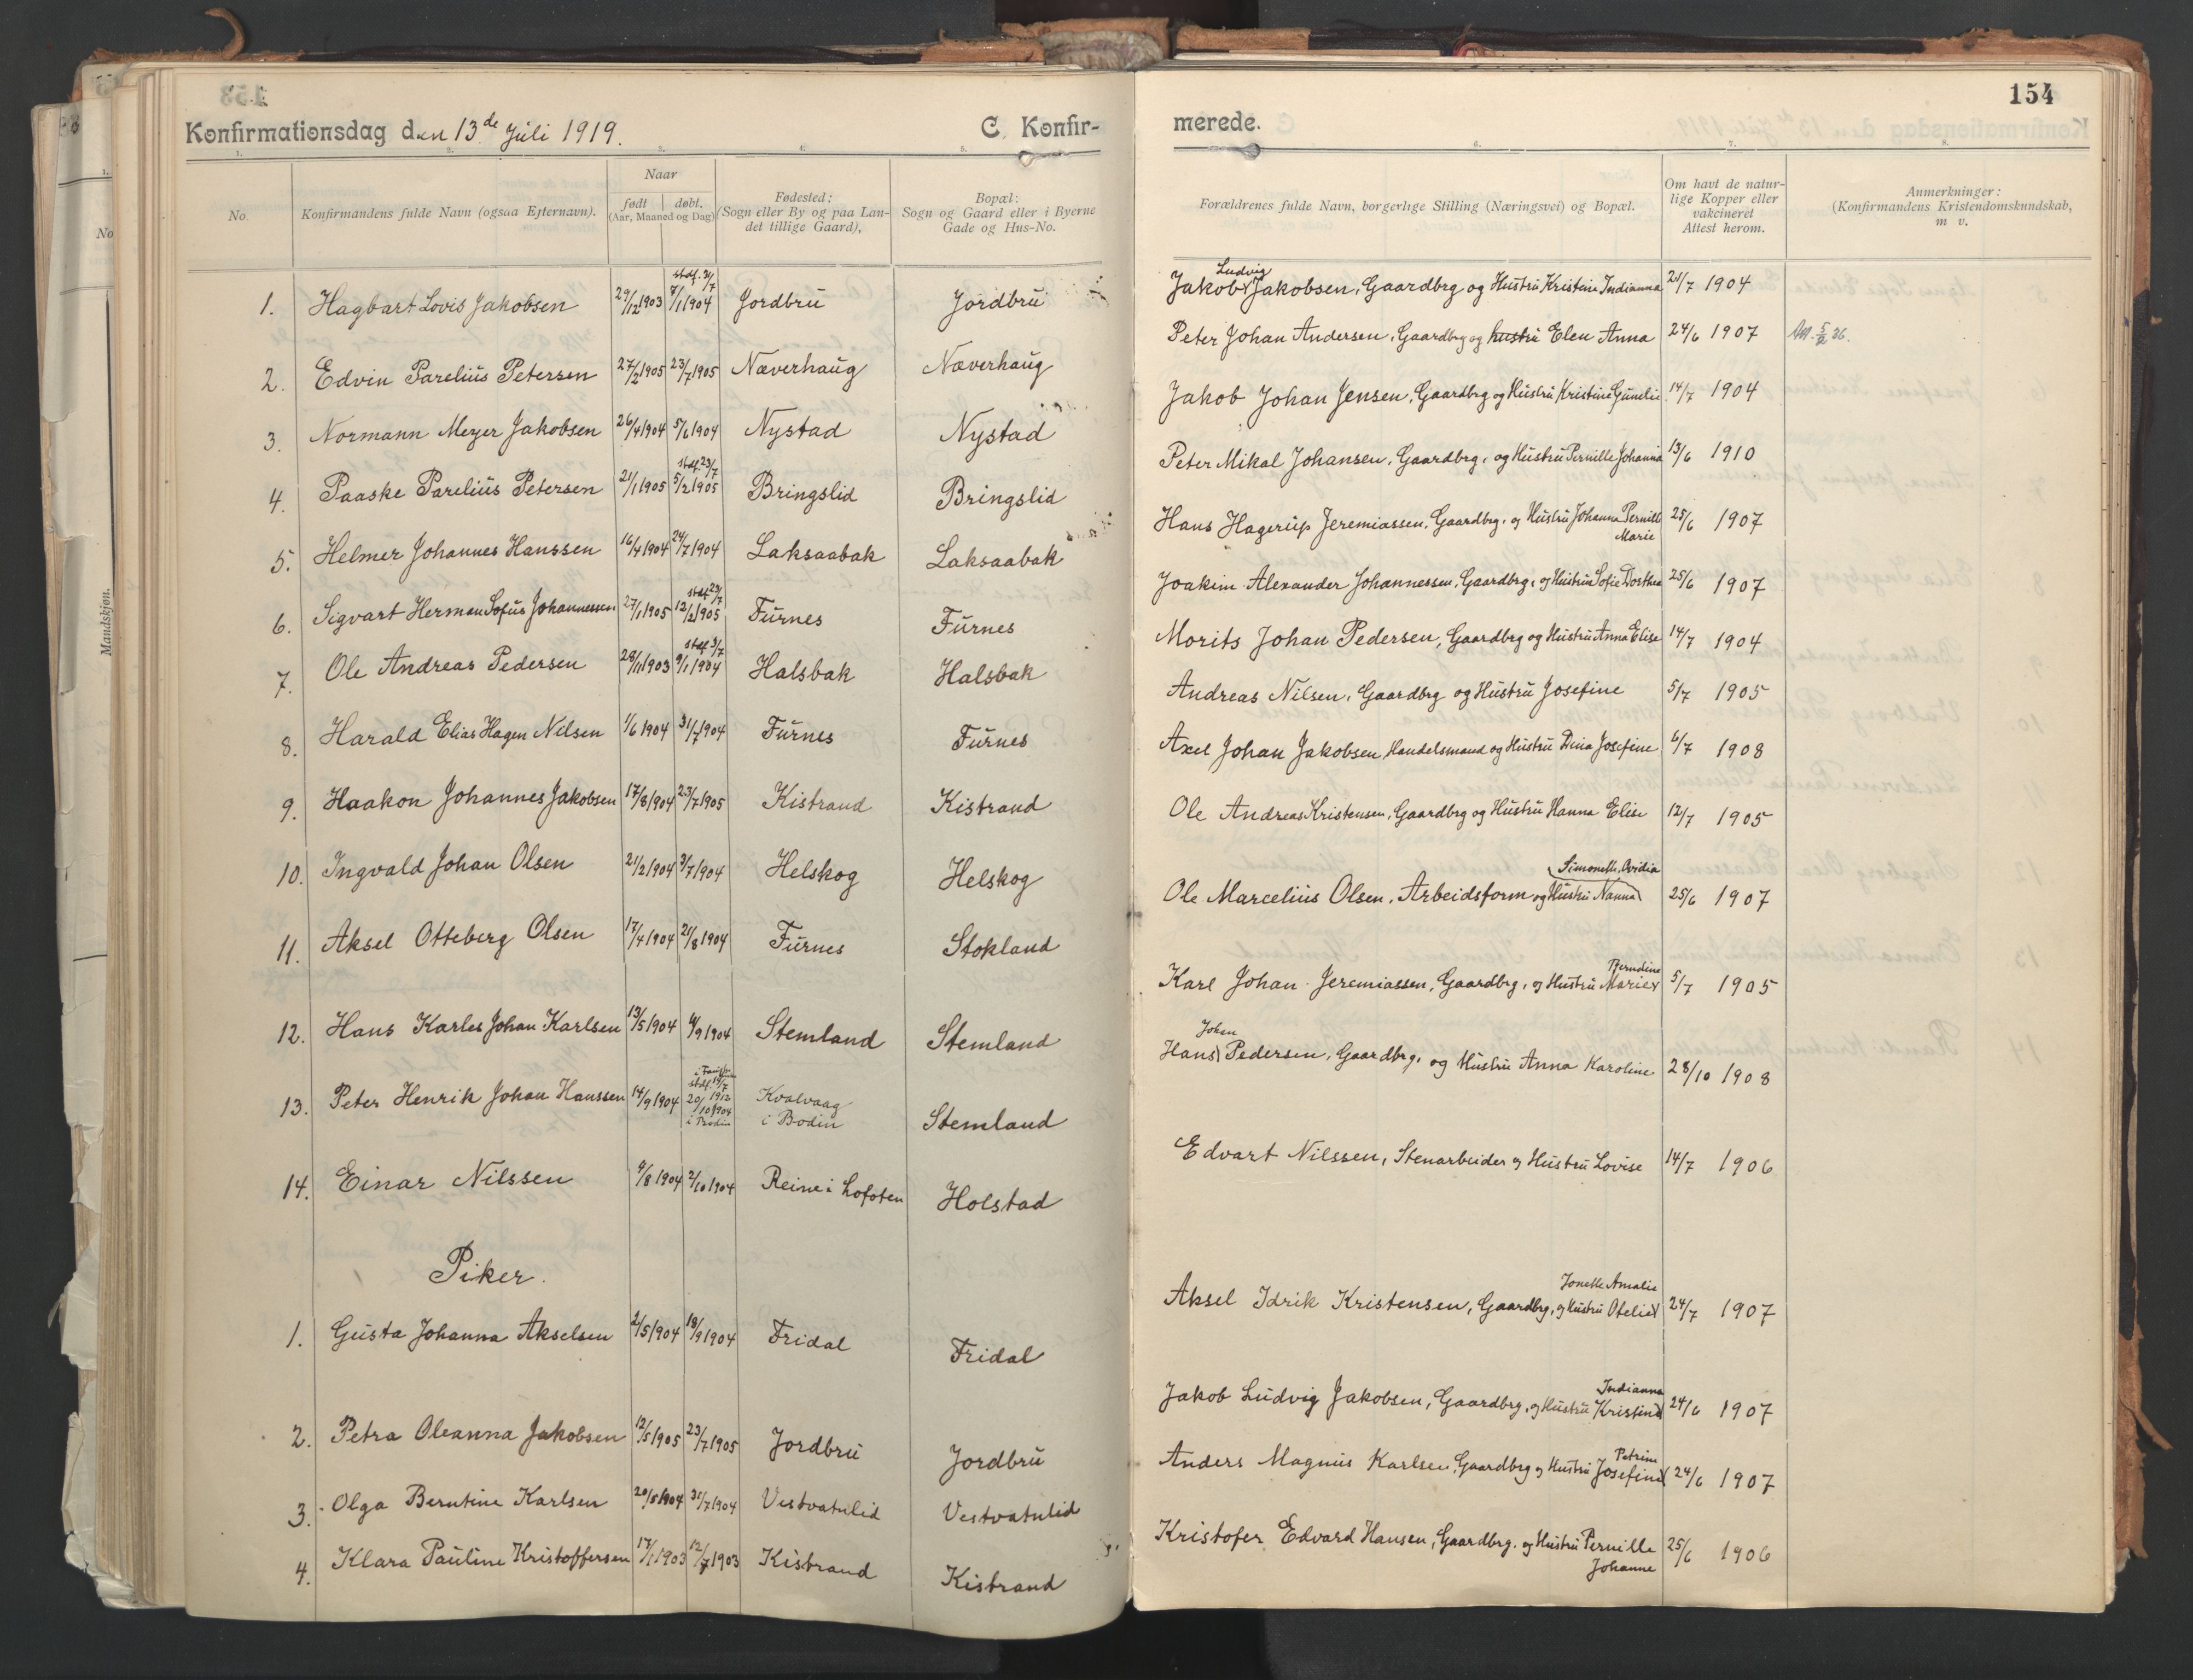 154
Konfirmationsdag den 13de Juli 1919.
C. Konfirmerede.
1. 2. 3. 4. 5. 6. 7. 8.
No.
Konfirmandens fulde Navn (ogsaa Efternavn).
Naar
født | døbt.
(Aar, Maaned og Dag)
Fødested:
(Sogn eller By og paa Landet tillige Gaard),
Bopæl:
Sogn og Gaard eller i Byerne
Gade og Hus-No.
Forældrenes fulde Navn, borgerlige Stilling (Næringsvei) og Bopæl.
Om havt de naturlige Kopper eller
vakcineret
Attest herom.
Anmerkninger:
(Konfirmandens Kristendomskundskab,
m v.
No
Mandskjøn.
1. Hagbart Lovis Jakobsen 29/12 1903 stdf. 31/7 7/1 1904 Jordbru Jordbru Jakob Ludvig Jakobsen, Gaardbrg og Hustru Kristine Indianna 21/7 1904
2. Edvin Parelius Petersen 27/2 1905 23/7 1905 Næverhaug Næverhaug Peter Johan Andersen, Gaardbrg og hustru Elen Anna 24/6 1907
3. Normann Meyer Jakobsen 26/4 1904 5/6 1904 Nystad Nystad Jakob Johan Jensen, Gaardbrg og Hustru Kristine Gunelie 14/7 1904
4. Paaske Parelius Petersen 21/1 1905 stdf. 23/7 5/2 1905 Bringslid Bringslid Peter Mikal Johansen, Gaardbrg. og Hustru Pernille Johanna 13/6 1910
5. Helmer Johannes Hanssen 16/4 1904 24/7 1904 Laksaabak Laksaabak Hans Hagerup Jeremiassen, Gaardbrg. og Hustru Johanna Pernille Marie 25/6 1907
6. Sigvart Herman Sofus Johannessen 27/1 1905 stdf 23/7 12/2 1905 Furnes Furnes Joakim Alexander Johannessen, Gaardbrg. og Hustru Sofie Dorthea 25/6 1907
7. Ole Andreas Pedersen 28/11 1903 stdf 3/7 9/1 1904 Halsbak Halsbak Morits Johan Pedersen, Gaardbrg og Hustru Anna Elise 14/7 1904
8. Harald Elias Hagen Nilsen 1/6 1904 31/7 1904 Furnes Furnes Andreas Nilsen, Gaardbrg og Hustru Josefine 5/7 1905
9. Haakon Johannes Jakobsen 17/8 1904 23/7 1905 Kistrand Kistrand Axel Johan Jakobsen Handelsmand og Hustru Dina Josefine 6/7 1908
10. Ingvald Johan Olsen 21/2 1904 3/7 1904 Helskog Helskog Ole Andreas Kristensen, Gaardbrg og Hustru Hanna Elise 12/7 1905
11. Aksel Otteberg Olsen 17/4 1904 21/8 1904 Furnes Stokland Ole Marcelius Olsen, Arbeidsform og Hustru Nanna Simonette Ovidia 25/6 1907
12. Hans Karles Johan Karlsen 13/5 1904 4/9 1904 Stemland Stemland Karl Johan Jeremiassen, Gaardbrg. og Hustru Marie Berndine 5/7 1905
13. Peter Henrik Johan Hanssen 14/9 1904 stdf. 14/7 1912 20/10 1904 i Bodin Kvalvaag i Bodin Stemland Hans Johan Pedersen, Gaardbrg. og Hustru Anna Karoline 28/10 1908
14. Einar Nilssen 9/8 1904 2/10 1904 Reine i Lofoten Holstad Edvart Nilssen, Stenarbeider og Hustru Lovise 14/7 1906
Piker.
1. Gusta Johanna Akselsen 2/5 1904 18/9 1904 Fridal Fridal Aksel Idrik Kristensen, Gaardbrg. og Hustru Otelie Jonette Amalie 24/7 1907
2. Petra Oleanna Jakobsen 12/5 1905 23/7 1905 Jordbru Jordbru Jakob Ludvig Jakobsen, Gaardbrg. og Hustru Kristine Indianna 24/6 1907
3. Olga Berntine Karlsen 20/5 1904 31/7 1904 Vestvatnlid Vestvatnlid Anders Magnus Karlsen, Gaardbrg og Hustru Josefine Petrine 24/6 1907
4. Klara Pauline Kristoffersen 17/1 1903 12/7 1903 Kistrand Kistrand Kristofer Edvard Hansen, Gaardbrg. og Hustru Pernille Johanne 25/6 1906